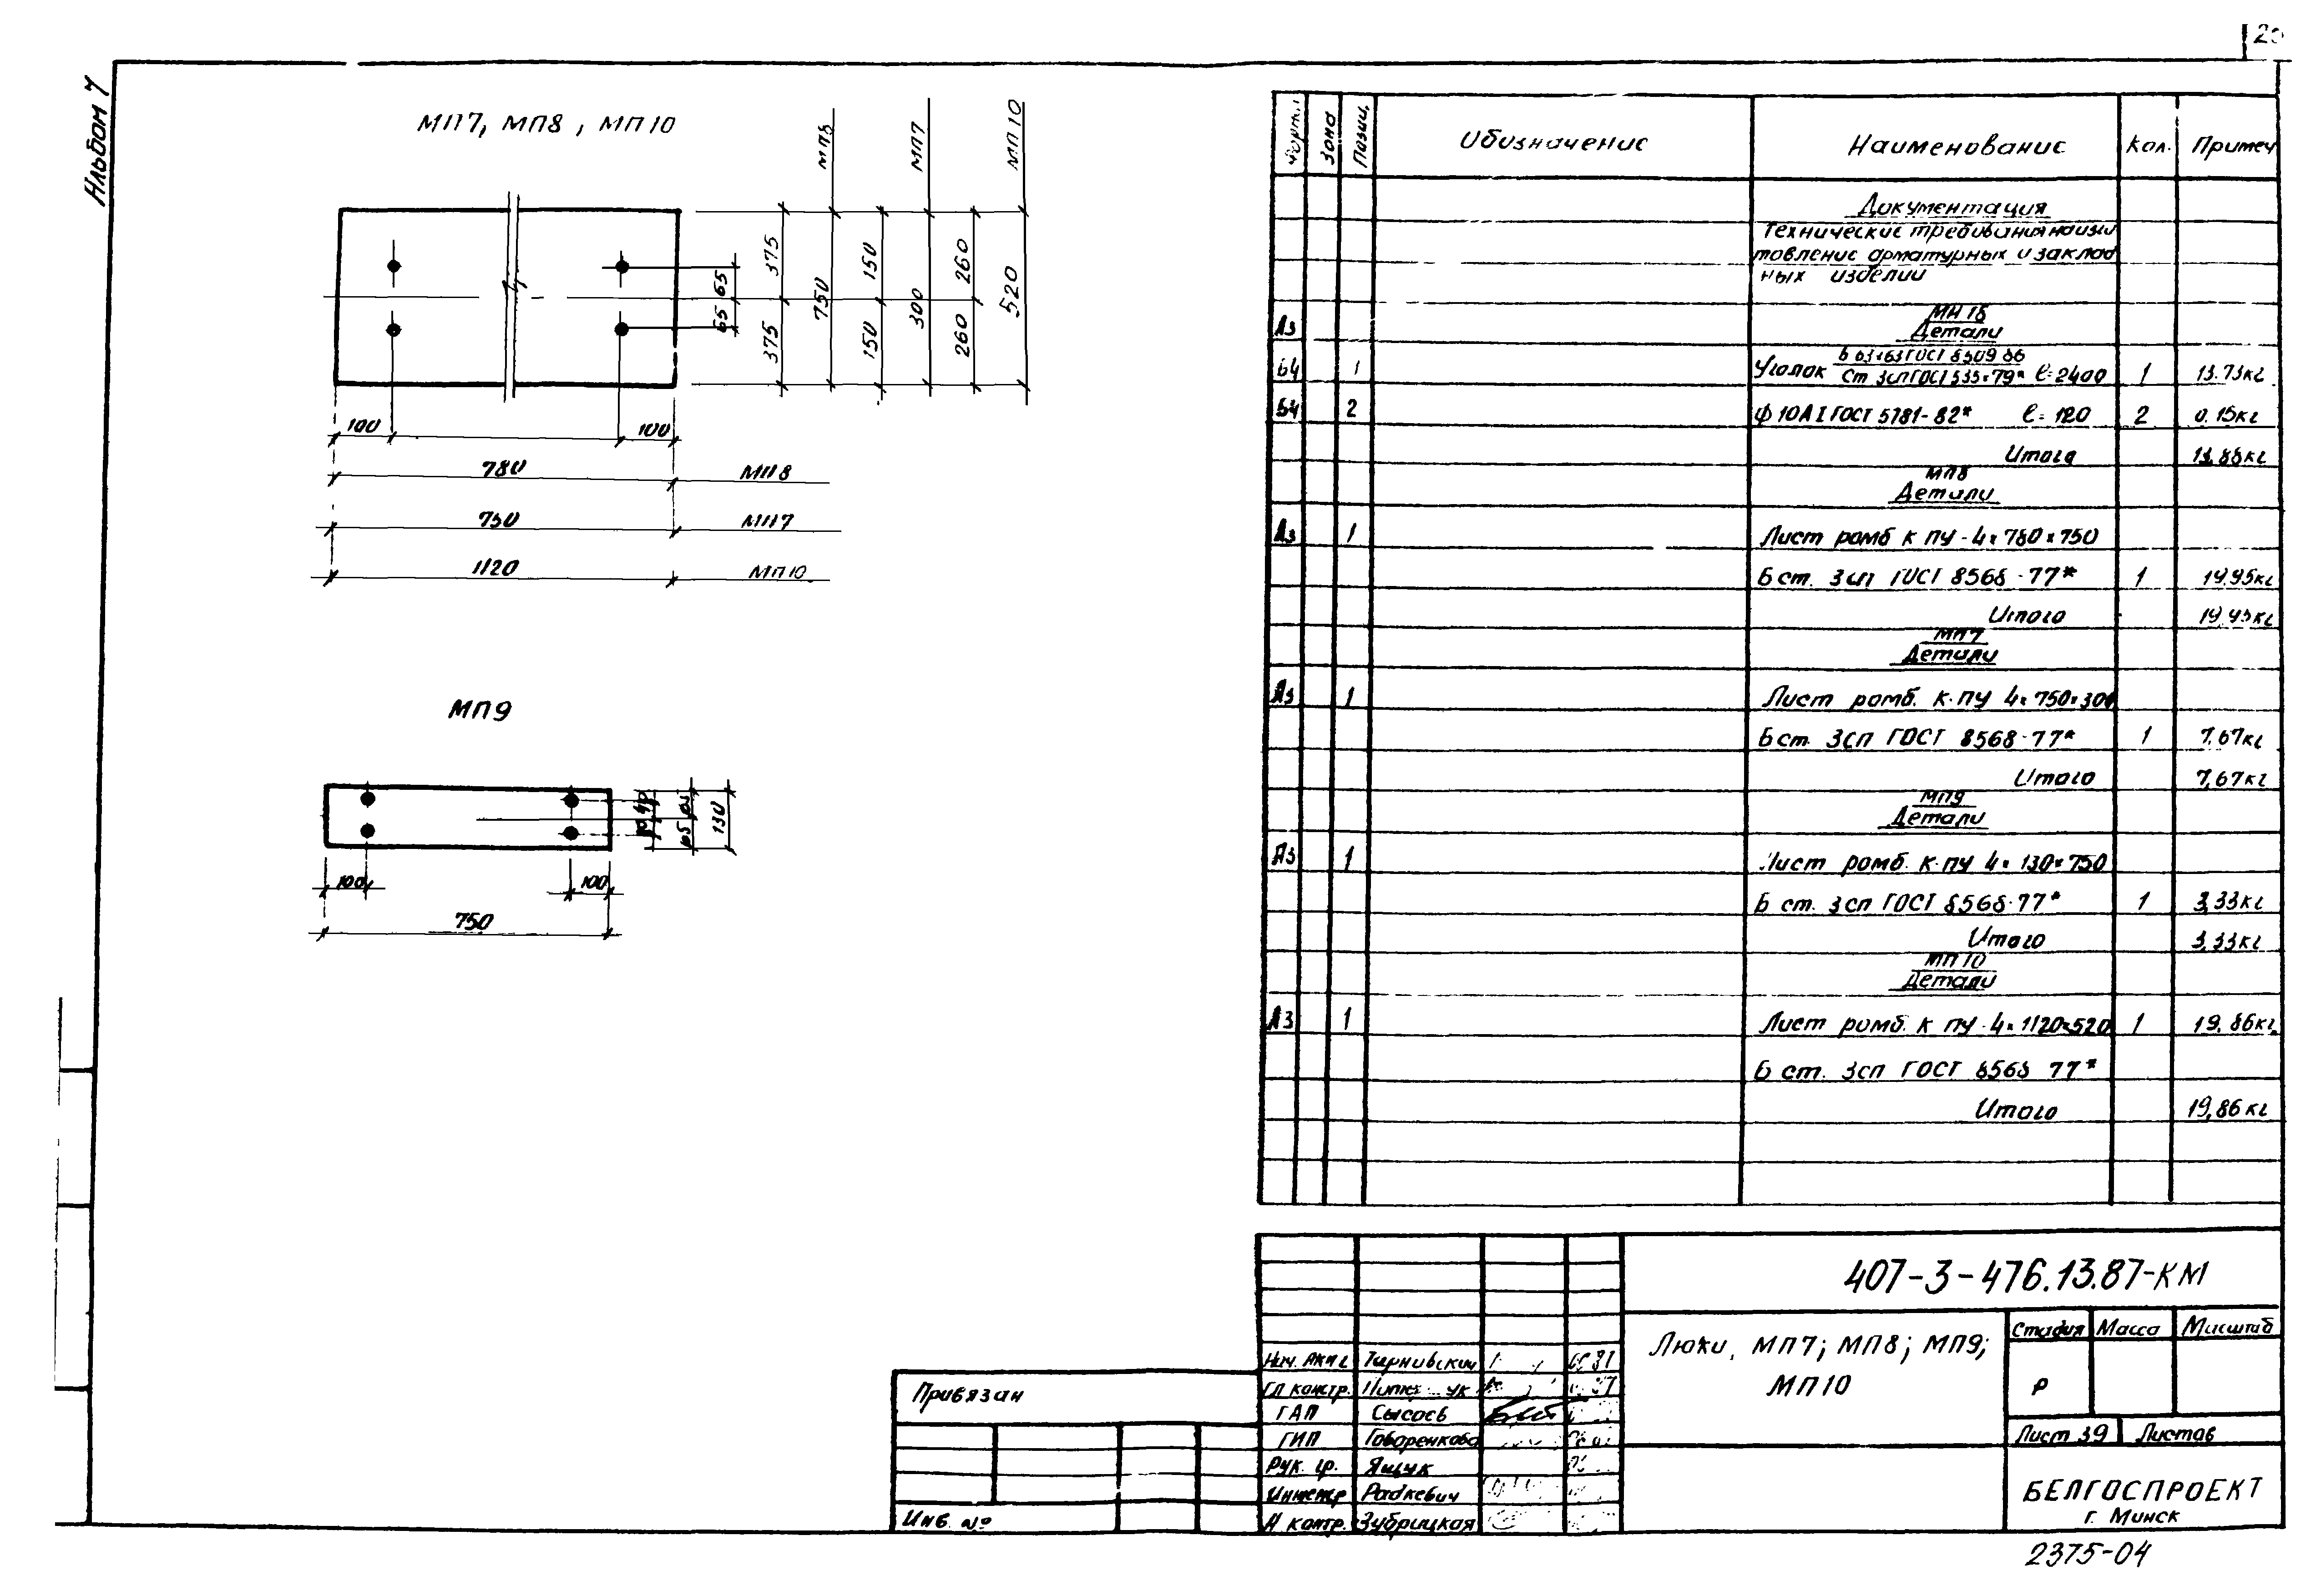 Альбом 7
МП7, МП8, МП10
МП8
МП7
МП10
65
65
375
375
750
150
150
300
260
260
520
100
100
780
МП8
750
МП7
1120
МП10
МП9
65
65
130
100
100
750
Зона
Позиц.
Обозначение
Наименование
Кол.
Примеч
Документация
Технические требования на изго
товление арматурных и заклад
ных изделий
МН18
А3
Детали
Б4 1 Уголок Б 63×63 ГОСТ 8509-86 / Ст 3сп ГОСТ 535-79* ℓ=2400 1 13.73кг
Б4 2 Ф10АI ГОСТ 5781-82* ℓ=120 2 0.15кг
Итого 13.88кг
МП8
Детали
А3 1 Лист ромб К ПУ-4×780×750
Б ст. 3сп ГОСТ 8568-77* 1 19.95кг
Итого 19.95кг
МП7
Детали
А3 1 Лист ромб. К-ПУ 4×750×300
Б ст. 3СП ГОСТ 8568-77* 1 7.67кг
Итого 7,67кг
МП9
Детали
А3 1 Лист ромб. К-ПУ 4×130×750
Б ст. 3сп ГОСТ 8568-77* 1 3,33кг
Итого 3,33кг
МП10
Детали
А3 1 Лист ромб. К ПУ-4×1120×520 1 19.86кг
Б ст. 3сп ГОСТ 8568 77*
Итого 19,86кг
407-3-476.13.87-КМ1
Люки, МП7; МП8; МП9;
МП10
Стадия Масса Масштаб
Р
Лист 39 Листов
БЕЛГОСПРОЕКТ
г. Минск
Гл констр.
ГАП Сысоев
ГИП Говоренкова
Рук. гр. Ящук
Инженер Радкевич
Н контр. Зубрицкая
Привязан
Инв. №
2375-04